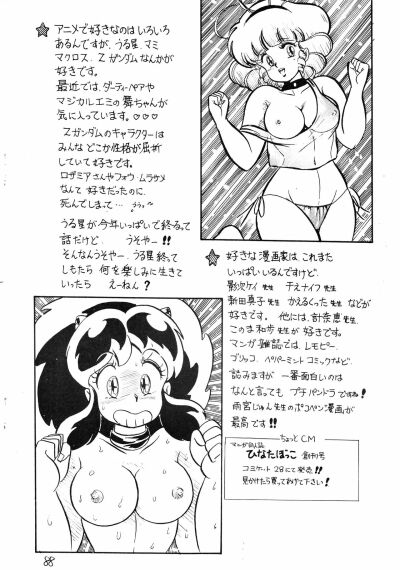 アニメで好きなのはいろいろ
あるんですが、うる星、マミ
マクロス、Zガンダムなんかが
好きです。
最近では、ダーティーペアや
マジカルエミの舞ちゃんが
気に入っています。♡♡♡
Zガンダムのキャラクターは
みんなどこか性格が屈折
していて好きです。
ロザミアさんやフォウ・ムラサメ
なんて好きだったのに、
死んでしまって…
うる星が今年いっぱいで終るって
話だけど、うそやー!!
そんなんうそやー、うる星終って
しもたら何を楽しみに生きて
いったらえーねん?
★好きな漫画家は、これまた
いっぱいいるんですけど、
影次ケイ先生 千之ナイフ先生
新田真子先生 かえるくった先生などが
好きです。他には、計奈恵先生、
このま和歩先生が好きです。
マンガ雑誌では、レモピー、
ブリッコ、ペパーミントコミックなど、
読みますが一番面白いのは
なんと言ってもプチパンドラですね!
雨宮じゅん先生のポコペン漫画が
最高です!!
ちょっとCM
マンガ同人誌
ひなたぼっこ 創刊号
コミケット28にて発売!!
見かけたら買ってあげて下さい!
88